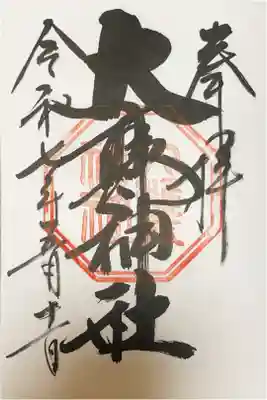 奉拝
大縣神社
令和七年五月十一日